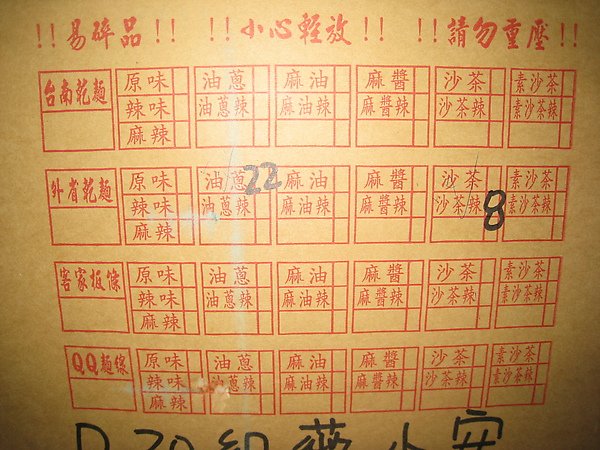 !!易碎品!! !!小心輕放!! !!請勿重壓!!
台南乾麵 原味 油蔥 麻油 麻醬 沙茶 素沙茶
辣味 油蔥辣 麻油辣 麻醬辣 沙茶辣 素沙茶辣
麻辣
外省乾麵 原味 油蔥 22 麻油 麻醬 沙茶 素沙茶
辣味 油蔥辣 麻油辣 麻醬辣 沙茶辣 8 素沙茶辣
麻辣
客家板條 原味 油蔥 麻油 麻醬 沙茶 素沙茶
辣味 油蔥辣 麻油辣 麻醬辣 沙茶辣 素沙茶辣
麻辣
QQ麵線 原味 油蔥 麻油 麻醬 沙茶 素沙茶
辣味 油蔥辣 麻油辣 麻醬辣 沙茶辣 素沙茶辣
麻辣